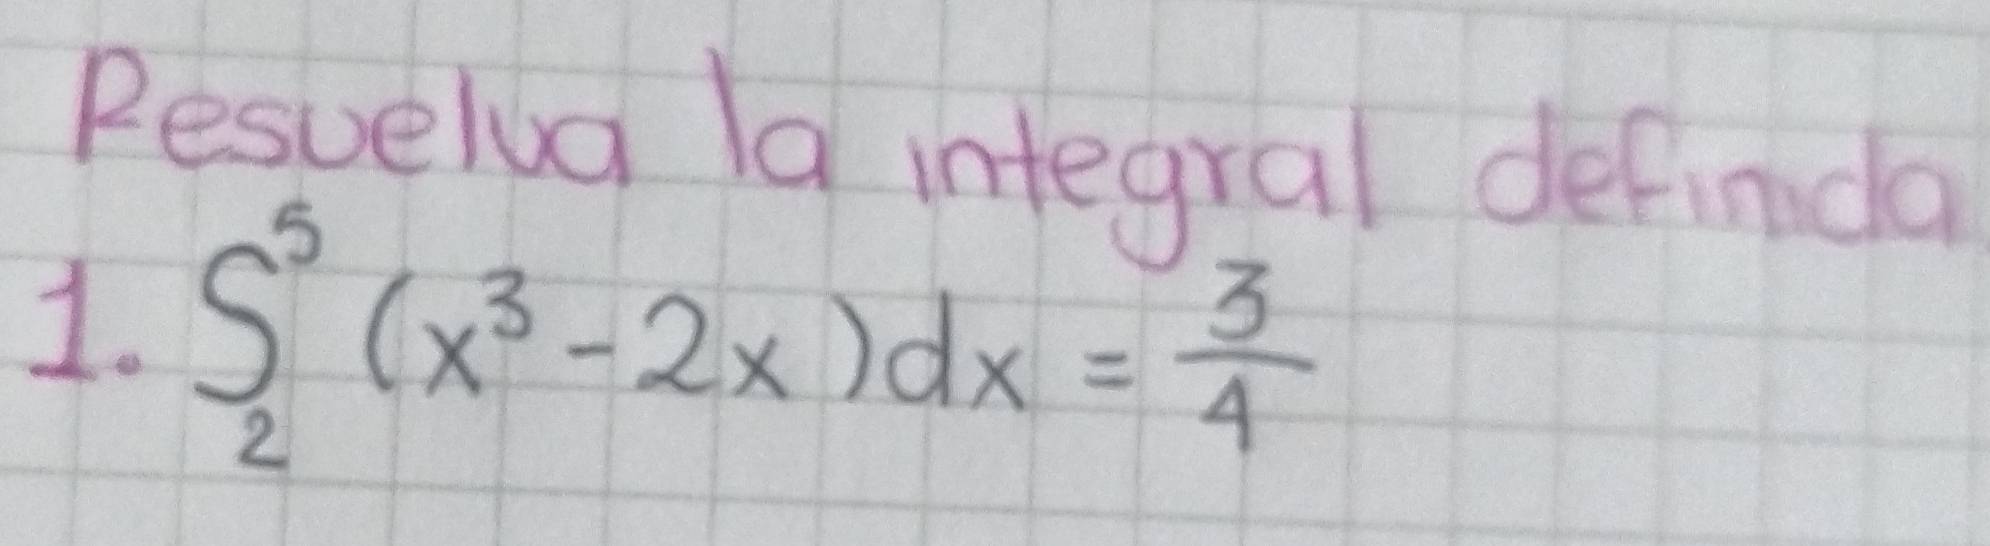 Resuelva la integral definida
1. ∫₂⁵ (x³ - 2x) dx = 3/4